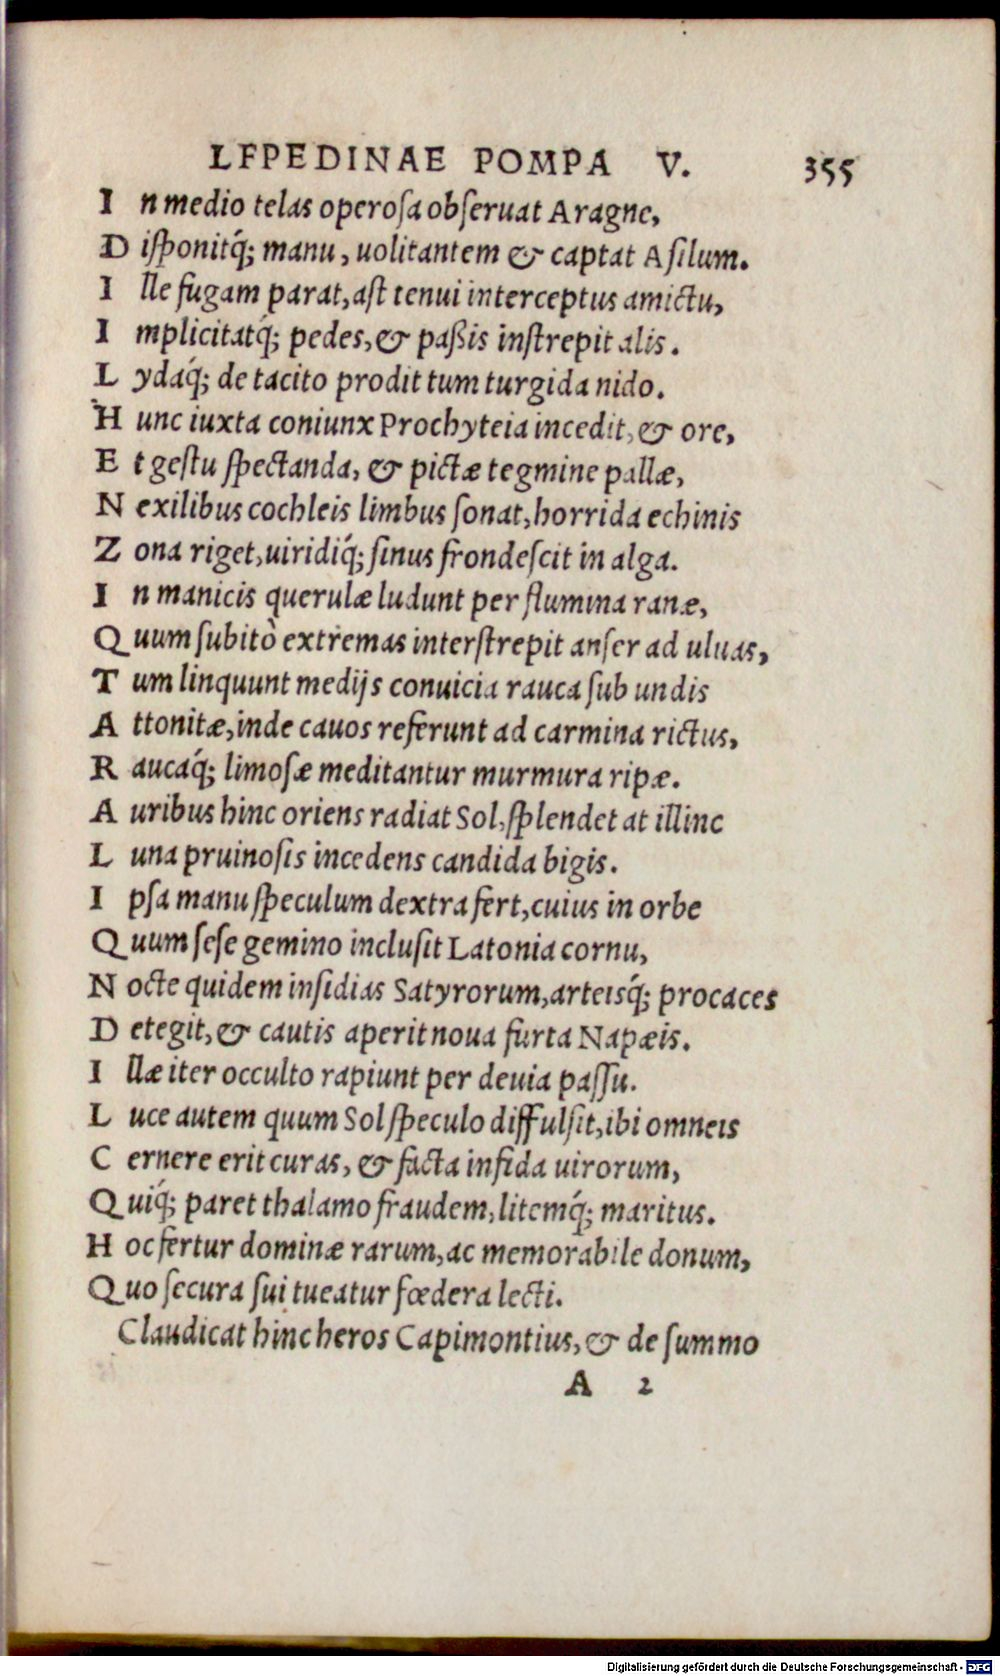 LFPEDINAE POMPA V. 355
I n medio telas operoſa obſeruat Aragne,
D iſponitq́; manu, uolitantem & captat Aſilum.
I lle fugam parat, aſt tenui interceptus amictu,
I mplicitatq́; pedes, & paßis inſtrepit alis.
L ydaq́; de tacito prodit tum turgida nido.
H unc iuxta coniunx Prochyteia incedit, & ore,
E t geſtu ſpectanda, & pictæ tegmine pallæ,
N exilibus cochleis limbus ſonat, horrida echinis
Z ona riget, uiridiq́; ſinus frondeſcit in alga.
I n manicis querulæ ludunt per flumina ranæ,
Q uum ſubitò extremas interſtrepit anſer ad uluas,
T um linquunt medijs conuicia rauca ſub undis
A ttonitæ, inde cauos referunt ad carmina rictus,
R aucaq́; limoſæ meditantur murmura ripæ.
A uribus hinc oriens radiat Sol, ſplendet at illinc
L una pruinoſis incedens candida bigis.
I pſa manu ſpeculum dextra fert, cuius in orbe
Q uum ſeſe gemino incluſit Latonia cornu,
N octe quidem inſidias Satyrorum, arteisq́; procaces
D etegit, & cautis aperit noua furta Napæis.
I llæ iter occulto rapiunt per deuia paſſu.
L uce autem quum Sol ſpeculo diffulſit, ibi omneis
C ernere erit curas, & facta infida uirorum,
Q uiq́; paret thalamo fraudem, litemq́; maritus.
H oc fertur dominæ rarum, ac memorabile donum,
Q uo ſecura ſui tueatur fœdera lecti.
Claudicat hinc heros Capimontius, & de ſummo
A 2
Digitalisierung gefördert durch die Deutsche Forschungsgemeinschaft - DFG